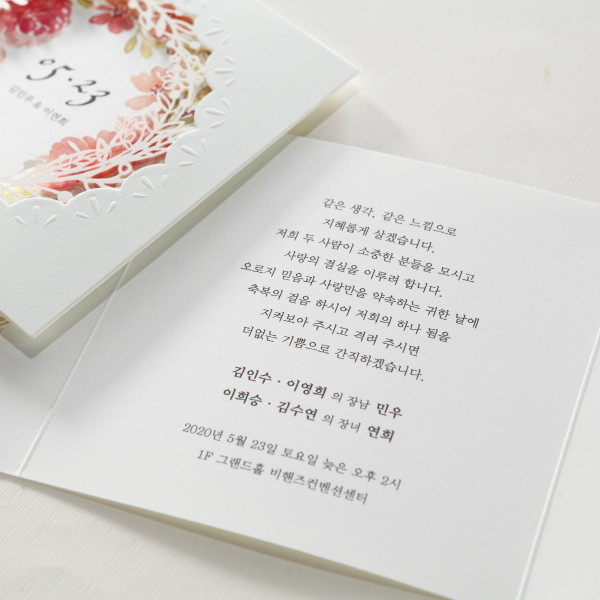 05.23
김민우 & 이연희
같은 생각, 같은 느낌으로
지혜롭게 살겠습니다.
저희 두 사람이 소중한 분들을 모시고
사랑의 결실을 이루려 합니다.
오로지 믿음과 사랑만을 약속하는 귀한 날에
축복의 걸음 하시어 저희의 하나 됨을
지켜보아 주시고 격려 주시면
더없는 기쁨으로 간직하겠습니다.
김인수 · 이영희 의 장남 민우
이희승 · 김수연 의 장녀 연희
2020년 5월 23일 토요일 늦은 오후 2시
1F 그랜드홀 비헨즈컨벤션센터